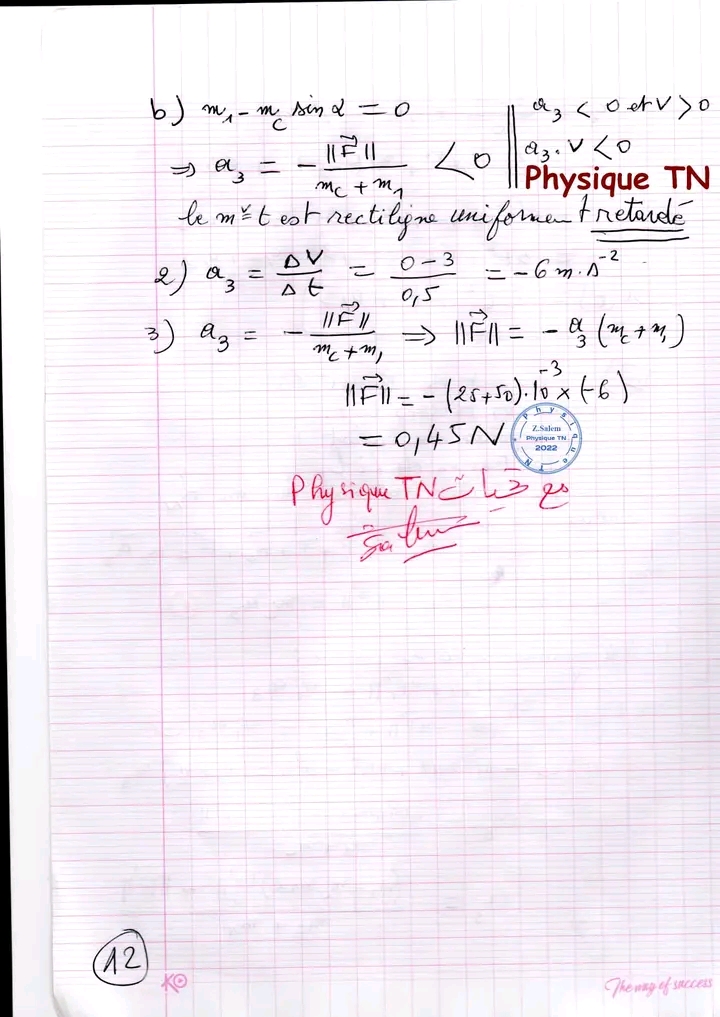 b) m₁ - m_C sin α = 0 || a₃ < 0 et V > 0
⇒ a₃ = - ||F⃗|| / (m_C + m₁) < 0 || a₃ . V < 0
Physique TN
le mᵛᵗ est rectiligne uniformément retardé
2) a₃ = ΔV / Δt = (0 - 3) / 0,5 = - 6 m . s⁻²
3) a₃ = - ||F⃗|| / (m_C + m₁) ⇒ ||F⃗|| = - a₃ (m_C + m₁)
||F⃗|| = - (25 + 50) . 10⁻³ × (-6)
= 0,45 N
Physique TN
Z.Salem
Physique TN
2022
مع تحيات Physique TN
12
KO
The way of success